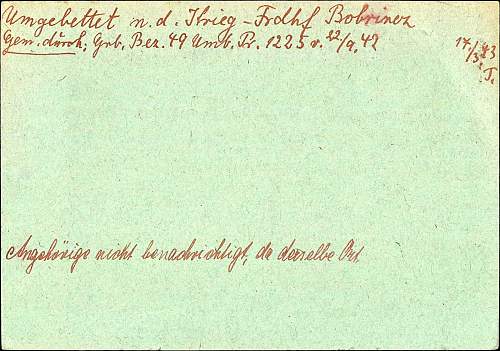 Umgebettet n. d. Krieg-Frdhf Bobrinez
Gem. durch: Grb. Bez. 49 Umb. Pr. 1225 v. 22/9. 42
17./3. 43
T.
Angehörige nicht benachrichtigt, da derselbe Ort.